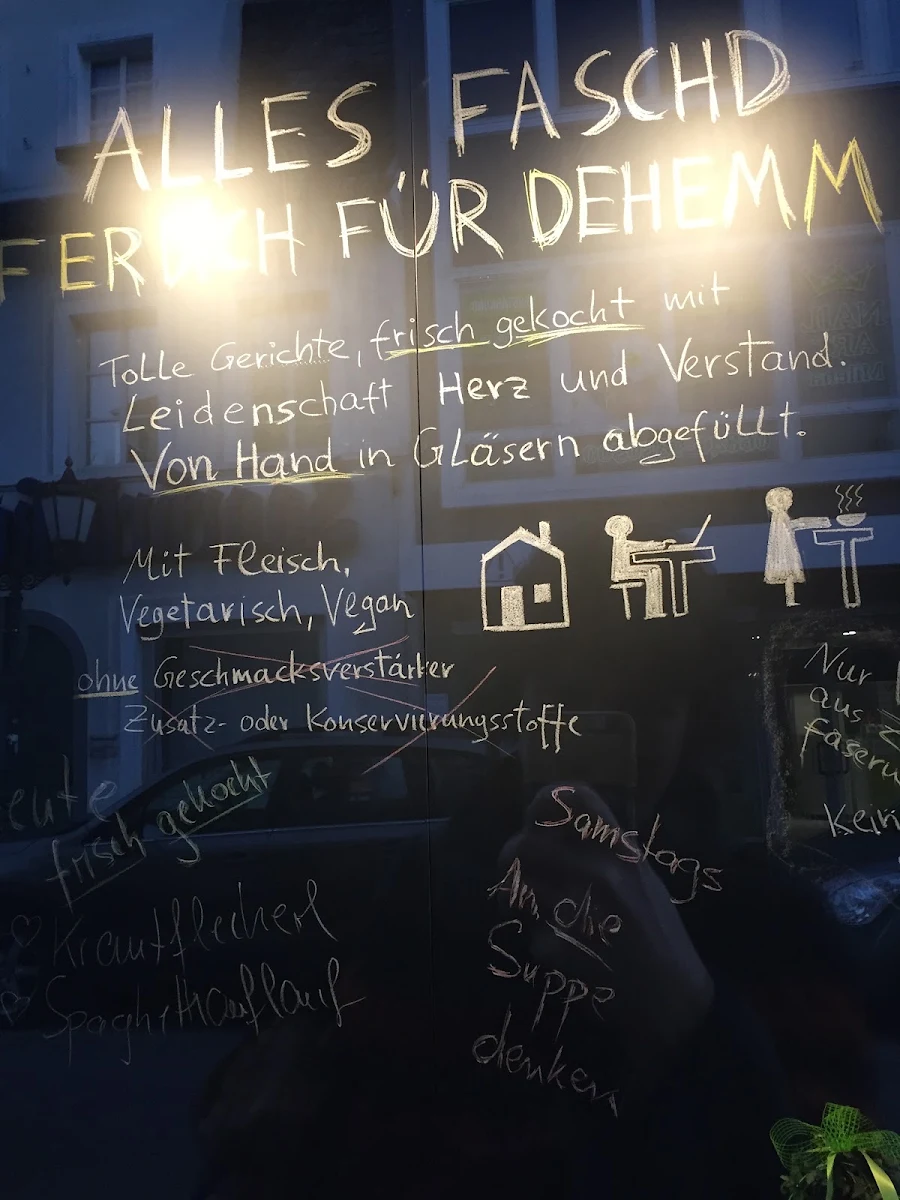 ALLES FASCHD
FÜR DEHEMM
Tolle Gerichte, frisch gekocht mit
Leidenschaft Herz und Verstand.
Von Hand in Gläsern abgefüllt.
Mit Fleisch,
Vegetarisch, Vegan
ohne Geschmacksverstärker
Zusatz- oder Konservierungsstoffe
Nur
aus
eute
frisch gekocht
Krautfleckerl
Spaghettiauflauf
Samstags
An die
Suppe
denken